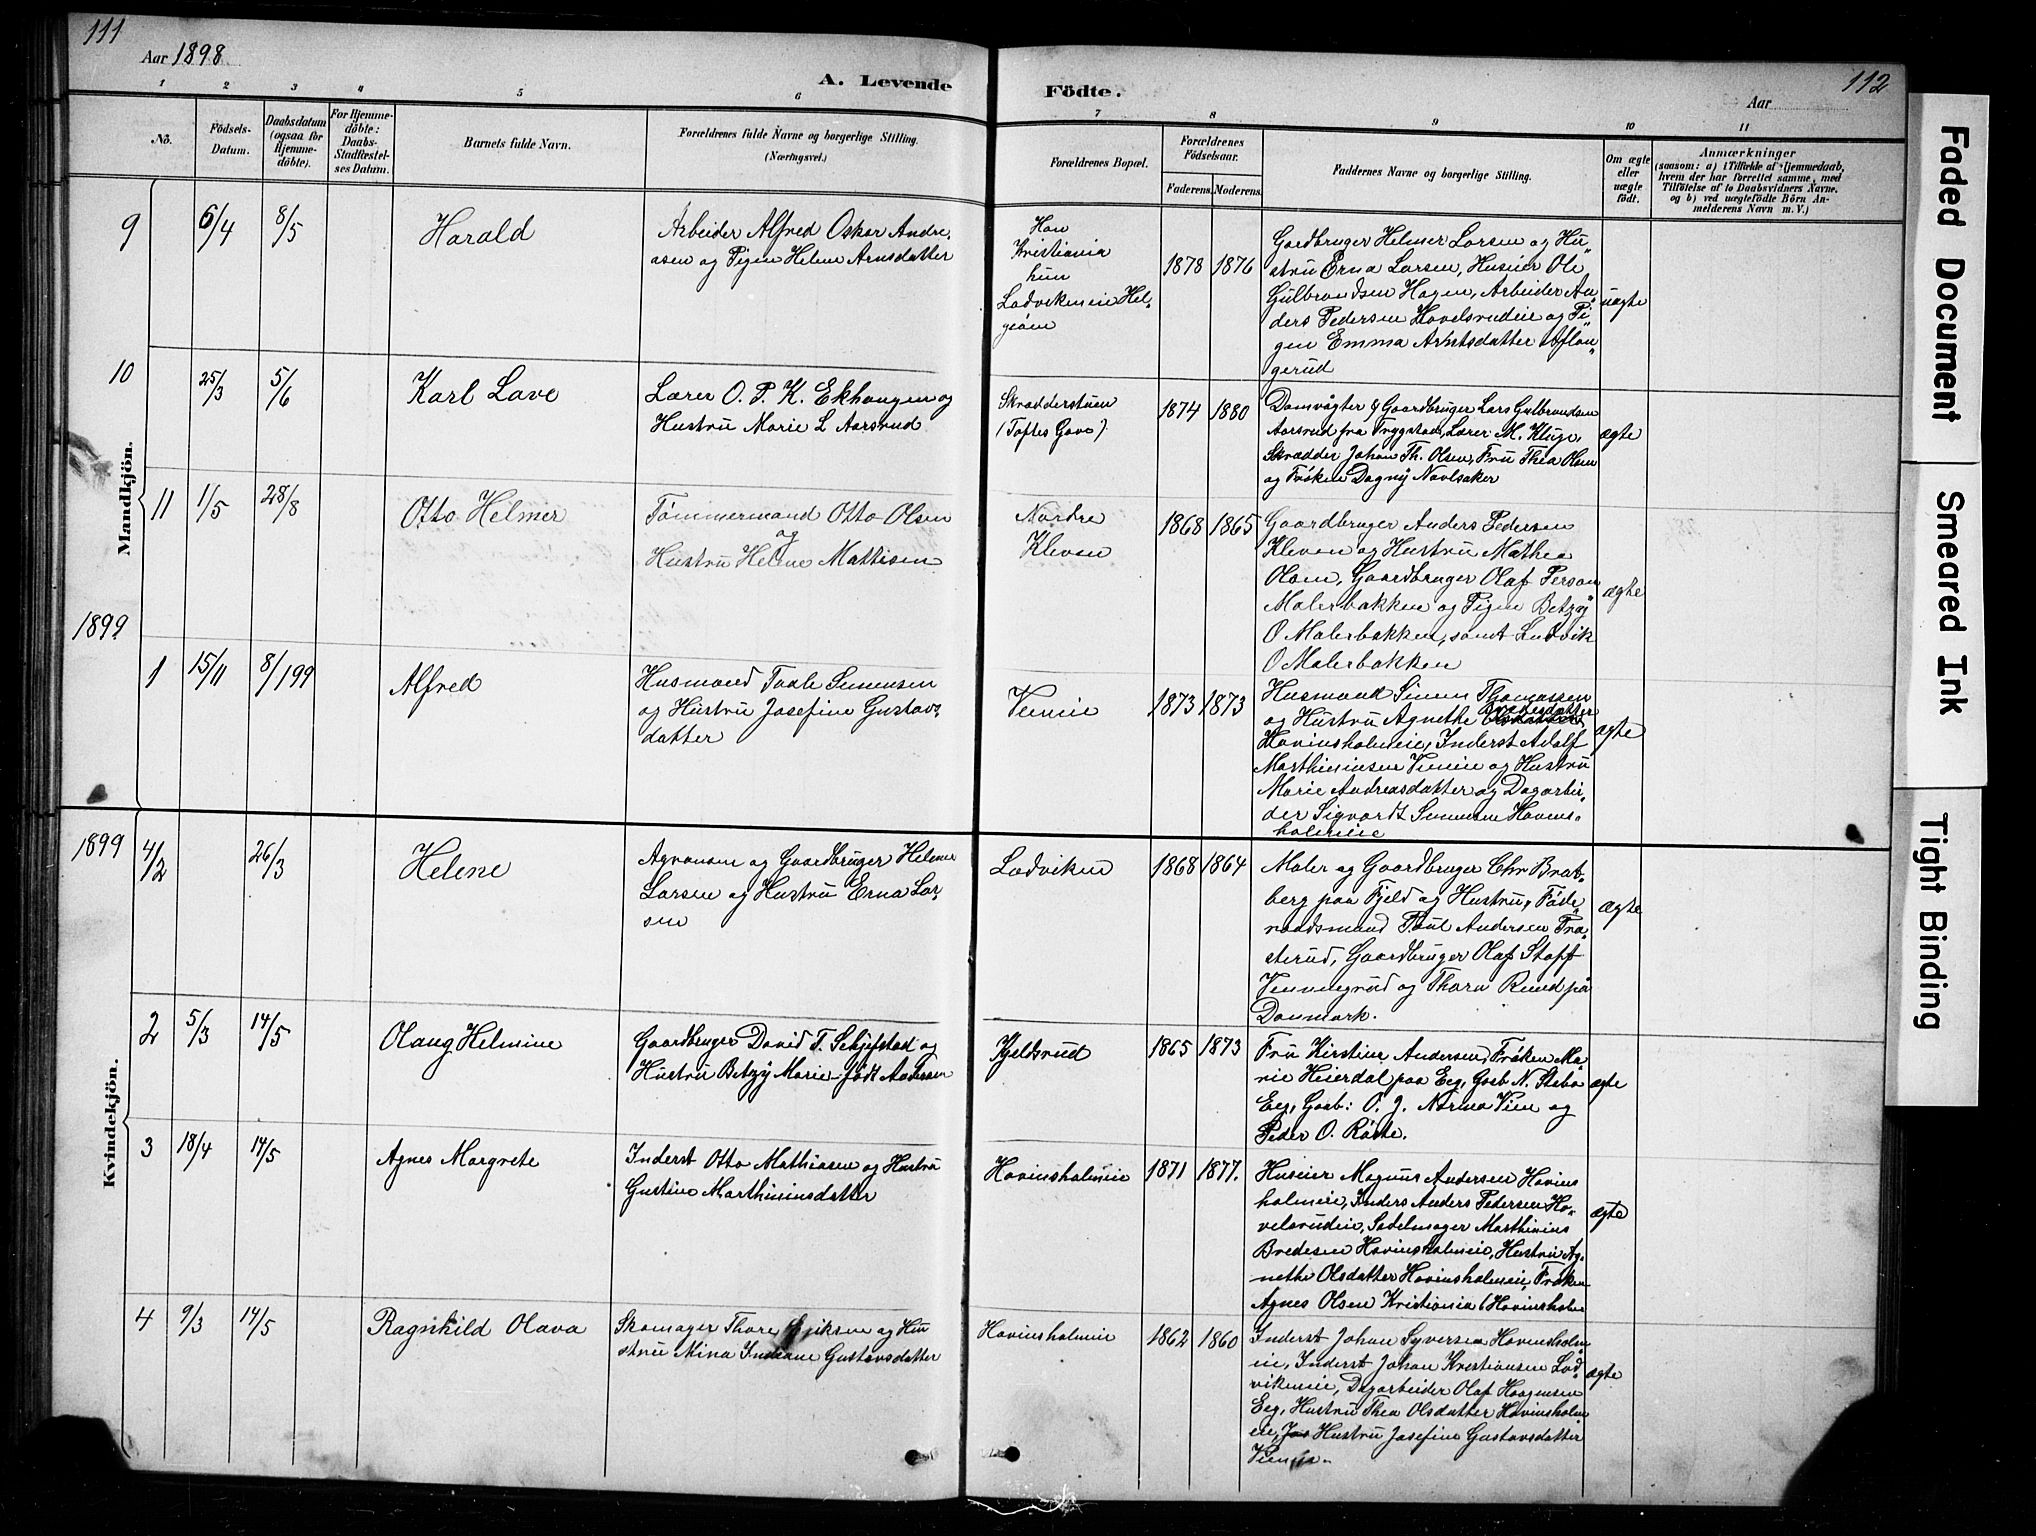 111
Aar 1898
A. Levende
Födte.
Aar
112
1
2
3
4
5
6
7
8
9
10
11
No.
Födsels-
Datum.
Daabsdatum
(ogsaa for
Hjemme-
döbte).
For Hjemme-
döbte:
Daabs-
Stadfæstel-
ses Datum.
Barnets fulde Navn.
Forældrenes fulde Navne og borgerlige Stilling.
(Næringsvei.)
Forældrenes Bopæl.
Forældrenes
Födselsaar.
Faderens.
Moderens.
Faddernes Navne og borgerlige Stilling.
Om ægte
eller
uægte
födt.
Anmærkninger
(saasom: a) i Tilfælde af Hjemmedaab,
hvem der har forrettet samme, med
Tilföielse af to Daabsvidners Navne,
og b) ved uægtefödte Börn An-
melderens Navn m. V.)
Mandkjön.
9
6/4
8/5
Harald
Arbeider Alfred Oskar Andre-
asen og Pigen Helene Arnsdatter
Han
Kristiania
hun
Ladvikeneie Hel-
gøen
1878
1876
Gardbruger Helmer Larsen og Hu-
stru Erna Larsen, Huseier Ole
Gulbrandsen Hagen, Arbeider An-
ders Pedersen Hovelsrudeie og Pi-
gen Emma Arntsdatter
gerud
uægte
10
25/3
5/6
Karl Lave
Lærer O. P. K. Ekhaugen og
Hustru Marie L Aarsrud
Skrædderstuen
(Toftes Gave)
1874
1880
Damvågter & Gaardbruger Lars Gulbrandsen
Aarsrud fra Trygstad, Lærer M. Kluge,
Skrædder Johan Th. Olsen, Fru Thea Olsen
og Frøken Dagny Navlsaker
ægte
11
1/5
28/8
Otto Helmer
Tømmermand Otto Olsen
og
Hustru Helene Mattisen
Nordre
Kleven
1868
1865
Gaardbruger Anders Pedersen
Kleven og Hustru Mathea
Olsen, Gaardbruger Olaf Person
Malerbakken og Pigen Betzy
O Malerbakken, samt Ludvik
O Malerbakken
ægte
1899
1
15/11
8/1 99
Alfred
Husmand Taale Simensen
og Hustru Josefine Gustavs-
datter
Vieneie
1873
1873
Husmand Simen Thomassen
og Hustru Agnethe
Hovinsholmeie, Inderst Adolf
Marthiniusen Vieneie og Hustru
Marie Andreasdatter og Dagarbei-
der Sigvardt Simensen Hovins-
holmeie
ægte
Kvindekjön.
1899
4/2
26/3
Helene
Agronom og Gaardbruger Helmer
Larsen og Hustru Erna Lar-
sen
Ladviken
1868
1864
Maler og Gaardbruger Chr Brat-
berg paa Fjeld og Hustru, Føde-
raadsmand Poul Andersen Fra-
sterud, Gaardbruger Olaf Staff
og Thora Rund på
Danmark.
ægte
2
5/3
14/5
Olaug Helmine
Gaardbruger David T. Schjefstad og
Hustru Betzy Marie født Andersen
Kjeldsrud
1865
1873
Fru Kirstine Andersen, Frøken Ma-
rie Heierdal paa Eeg, Gaab N. Stebø
Eeg, Gaab: O. J. Narma Vien og
Peder O. Røste.
ægte
3
18/4
14/5
Agnes Margrete
Inderst Otto Mathiasen og Hustru
Gustine Marthiniusdatter
Hovinsholmeie
1871
1877.
Huseier Magnus Andersen Hovins
holmeie, Inders Anders Pedersen Ho-
velsrudeie, Sadelmager Marthinius
Bredesen Hovinsholmeie, Hustru Ag-
nethe Olsdatter Hovinsholmeie, Frøken
Agnes Olsen Kristiania (Hovinsholm
ægte
4
9/3
14/5
Ragnhild Olava
Skomager Thore Eriksen og Hu-
stru Mina Indiane Gustavsdatter
Hovinsholmeie
1862
1860
Inderst Johan Syversen Hovinsholm
eie, Inderst Johan Kristiansen Lad-
vikeneie, Dagarbeider Olaf Haagensen
Eeg, Hustru Thea Olsdatter Hovinsholm
eie, Hustru Josefine Gustavsdatter
Vieneie.
ægte
Faded Document
Smeared Ink
Tight Binding